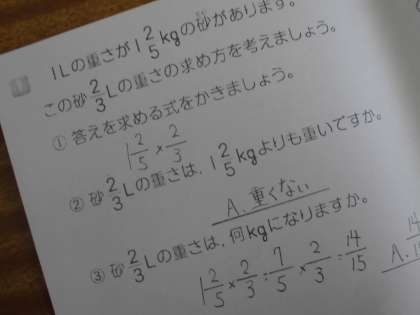 1
1Lの重さが1 2/5 kgの砂があります。
この砂 2/3 Lの重さの求め方を考えましょう。
① 答えを求める式をかきましょう。
1 2/5 × 2/3
② 砂 2/3 Lの重さは、1 2/5 kgよりも重いですか。
A. 重くない
③ 砂 2/3 Lの重さは、何kgになりますか。
1 2/5 × 2/3 = 7/5 × 2/3 = 14/15
A. 14